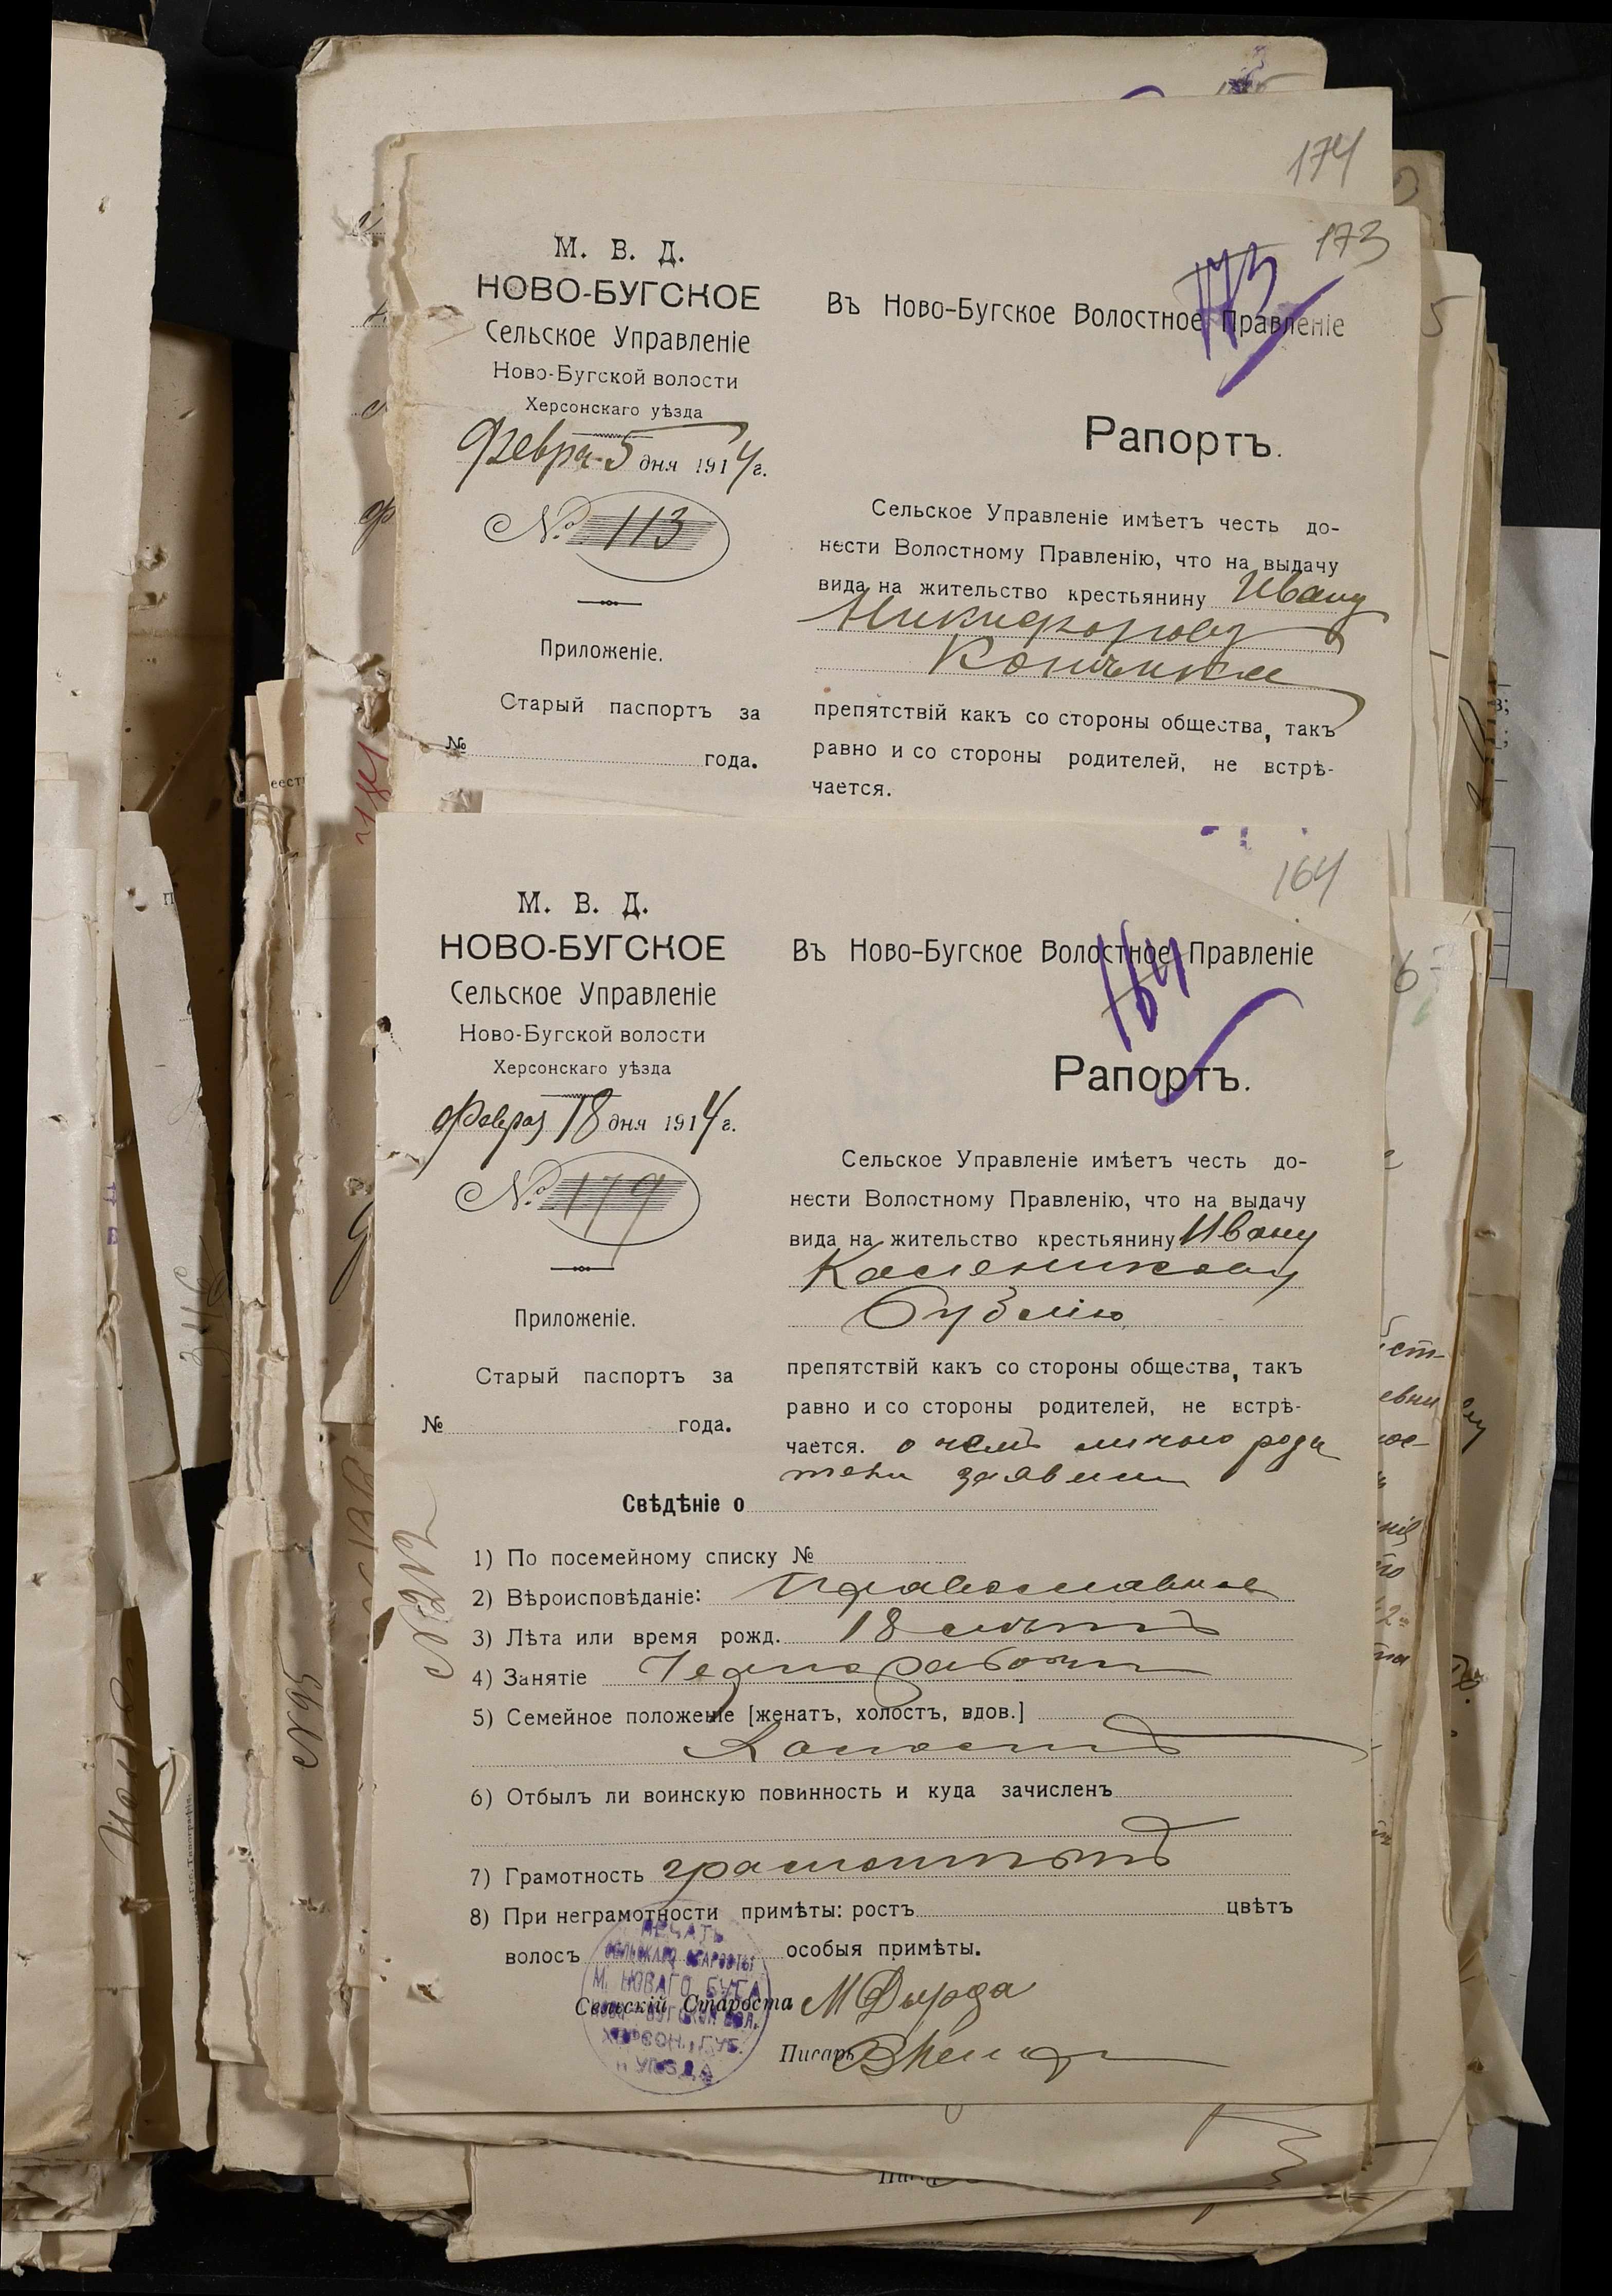 174
173
М. В. Д.
НОВО-БУГСКОЕ
Сельское Управленіе
Ново-Бугской волости
Херсонскаго уѣзда
Февра 5 дня 1914 г.
№ 113
Приложеніе.
Старый паспортъ за
№ года.
173
Въ Ново-Бугское Волостное Правленіе
Рапортъ.
Сельское Управленіе имѣетъ честь до-
нести Волостному Правленію, что на выдачу
вида на жительство крестьянину Ивану
Никифорову
препятствій какъ со стороны общества, такъ
равно и со стороны родителей, не встрѣ-
чается.
164
М. В. Д.
НОВО-БУГСКОЕ
Сельское Управленіе
Ново-Бугской волости
Херсонскаго уѣзда
Февраля 18 дня 1914 г.
№ 179
Приложеніе.
Старый паспортъ за
№ года.
164
Въ Ново-Бугское Волостное Правленіе
Рапортъ.
Сельское Управленіе имѣетъ честь до-
нести Волостному Правленію, что на выдачу
вида на жительство крестьянину Ивану
Касьяникову
Бублию
препятствій какъ со стороны общества, такъ
равно и со стороны родителей, не встрѣ-
чается. о чемъ лично роди
тели заявили
Свѣдѣніе о
1) По посемейному списку №
2) Вѣроисповѣданіе: Православное
3) Лѣта или время рожд. 18 лѣтъ
4) Занятіе Чернорабочій
5) Семейное положеніе [женатъ, холостъ, вдов.]
Холостъ
6) Отбылъ ли воинскую повинность и куда зачисленъ
7) Грамотность грамотный
8) При неграмотности примѣты: ростъ цвѣтъ
волосъ особыя примѣты.
Сельскій Староста М Дырда
Писарь
ПЕЧАТЬ
СЕЛЬСКАГО СТАРОСТЫ
М. НОВАГО БУГА
НОВО-БУГСКОЙ ВОЛ.
ХЕРСОН. ГУБ.
И УѢЗДА
№ 212
№ 95